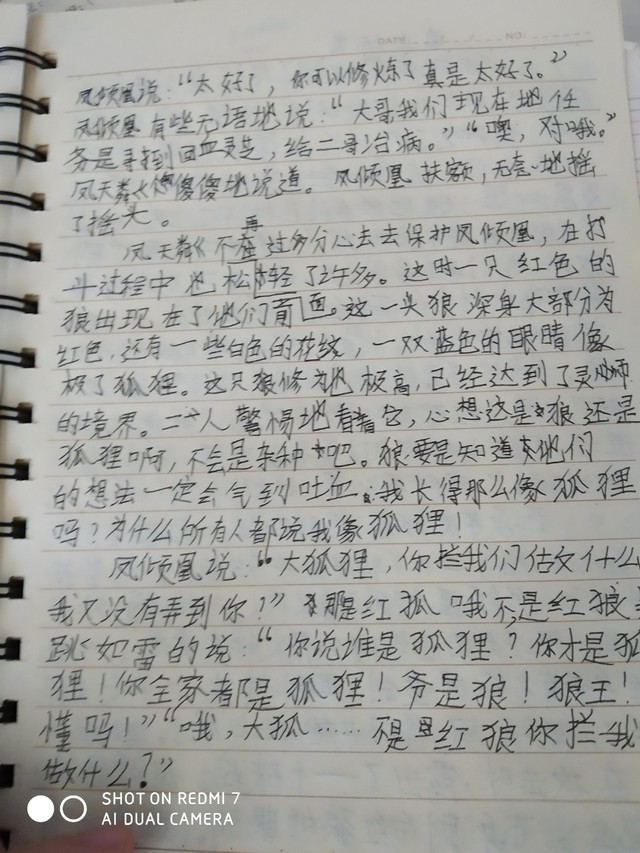 凤倾凰说：“太好了，你可以修炼了真是太好了。”
凤倾凰有些无语地说：“大哥我们现在地任
务是寻找到回血灵芝，给二哥治病。”“噢，对哦。”
凤天粦傻傻地说道。凤倾凰扶额，无奈地摇
了摇头。
凤天粦不再过多分心去去保护凤倾凰，在打
斗过程中也松轻了许多。这时一只红色的
狼出现在了他们前面。这一头狼深身大部分为
红色，还有一些白色的花纹，一双蓝色的眼睛像
极了狐狸。这只狼修为也极高，已经达到了灵师
的境界。二人警惕地看着它，心想这是狼还是
狐狸啊，不会是杂种吧。狼要是知道他们
的想法一定会气到吐血：我长得那么像狐狸
吗？为什么所有人都说我像狐狸！
凤倾凰说：“大狐狸，你拦我们估文什么
我又没有弄到你？”那是红狐哦不，是红狼
跳如雷的说：“你说谁是狐狸？你才是狐
狸！你全家都是狐狸！爷是狼！狼王！
懂吗！”“哦，大狐……不是红狼你拦我
做什么？”
SHOT ON REDMI 7
AI DUAL CAMERA